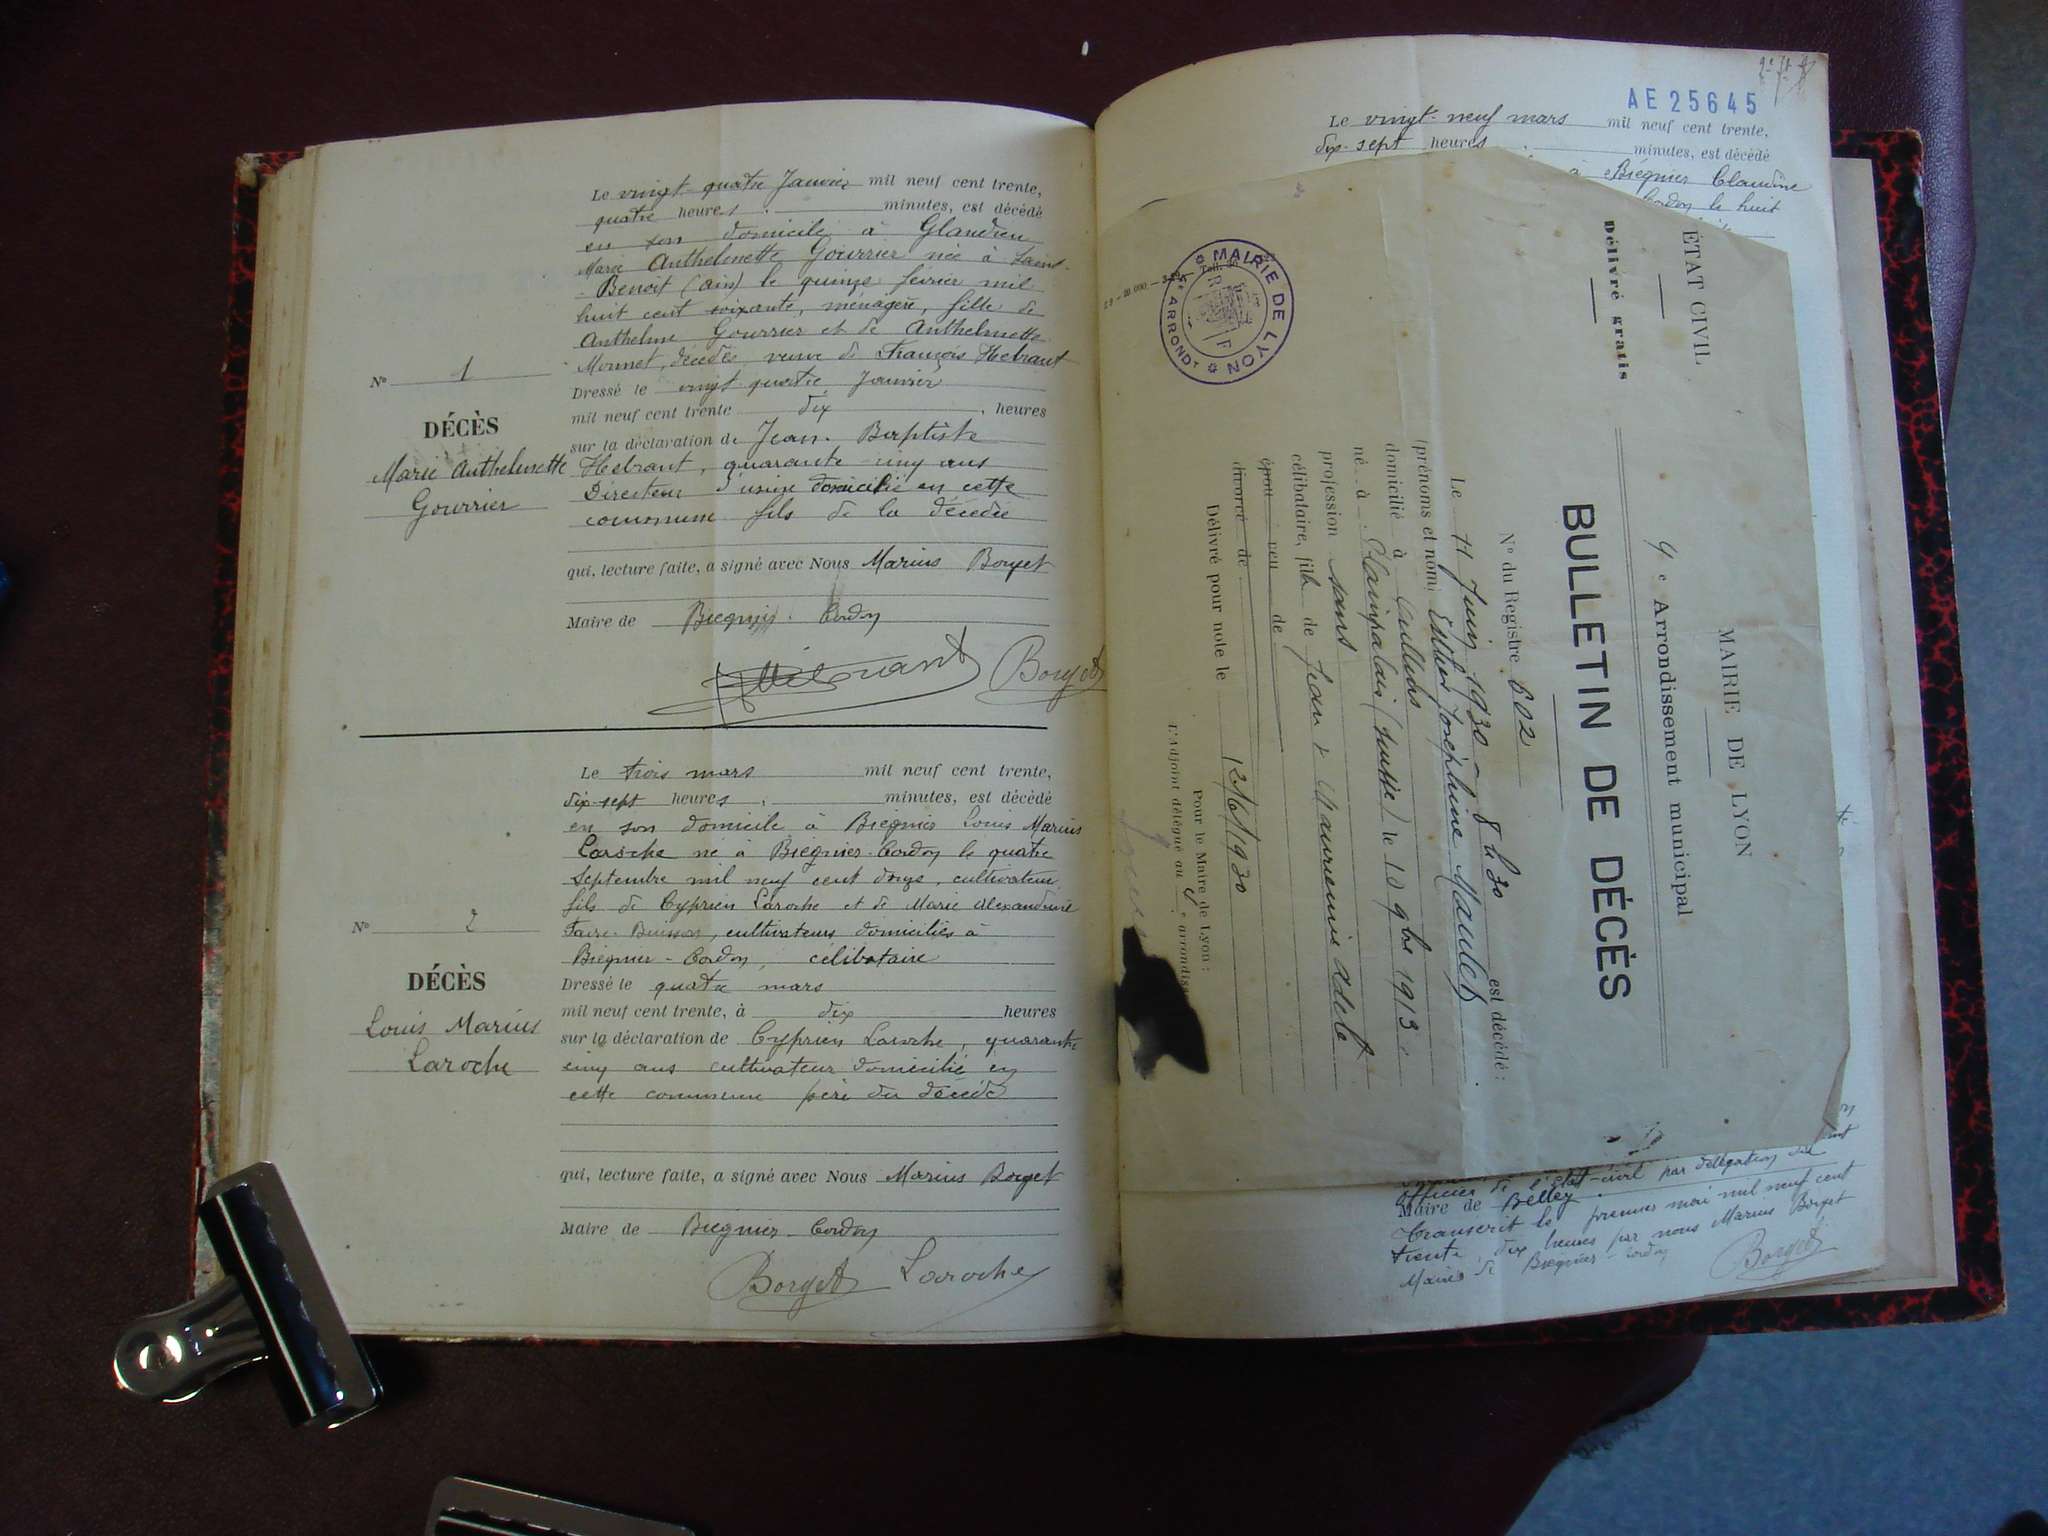 Le vingt-quatre Janvier mil neuf cent trente,
quatre heures minutes, est décédé
en son domicile à Glandieu
Marie Anthelmette Gourrier née à Saint-
Benoit (Ain) le quinze février mil
huit cent soixante, ménagère, fille de
Anthelme Gourrier et de Anthelmette
Monnet, décédés, veuve de François Hebrant
Dressé le vingt quatre Janvier
mil neuf cent trente dix , heures
sur la déclaration de Jean-Baptiste
Hebrant, quarante cinq ans
Directeur d'usine domicilié en cette
commune fils de la décédée
qui, lecture faite, a signé avec Nous Marius Borget
Maire de Brégnier-Cordon
Borget
N° 1
DÉCÈS
Marie Anthelmette
Gourrier
Le trois mars mil neuf cent trente,
dix-sept heures minutes, est décédé
en son domicile à Brégnier Louis Marius
Laroche né à Brégnier-Cordon le quatre
Septembre mil neuf cent douze, cultivateur,
fils de Cyprien Laroche et de Marie Alexandrine
Favre-Buisson, cultivateurs domiciliés à
Brégnier-Cordon, célibataire
Dressé le quatre mars
mil neuf cent trente, à dix heures
sur la déclaration de Cyprien Laroche, quarante
cinq ans cultivateur domicilié en
cette commune père du décédé
qui, lecture faite, a signé avec Nous Marius Borget
Maire de Brégnier-Cordon
Borget Laroche
N° 2
DÉCÈS
Louis Marius
Laroche
AE 25645
Le vingt-neuf mars mil neuf cent trente,
dix-sept heures minutes, est décédé
à Brégnier Claudine
Cordon le huit
MAIRIE DE LYON
9e Arrondissement municipal
ÉTAT CIVIL
Délivré gratis
BULLETIN DE DÉCÈS
N° du Registre 602
Le 11 Juin 1930 - 8 h 30 est décédé :
(prénoms et nom) Esther Joséphine Maulet
domicilié à
né à Plainpalais (Suisse) le 10 9bre 1913
profession sans
célibataire, fille de Jean &
époux veuf de
divorcé de
Délivré pour note le 12/6/1930
Pour le Maire de Lyon :
L'Adjoint délégué au 9e arrondis
MAIRIE DE LYON
ARRONDT
RF
officier de l'état-civil par délégation du
Maire de Belley
Transcrit le premier mai mil neuf cent
trente, dix heures par nous Marius Borget
Maire de Brégnier-Cordon
Borget